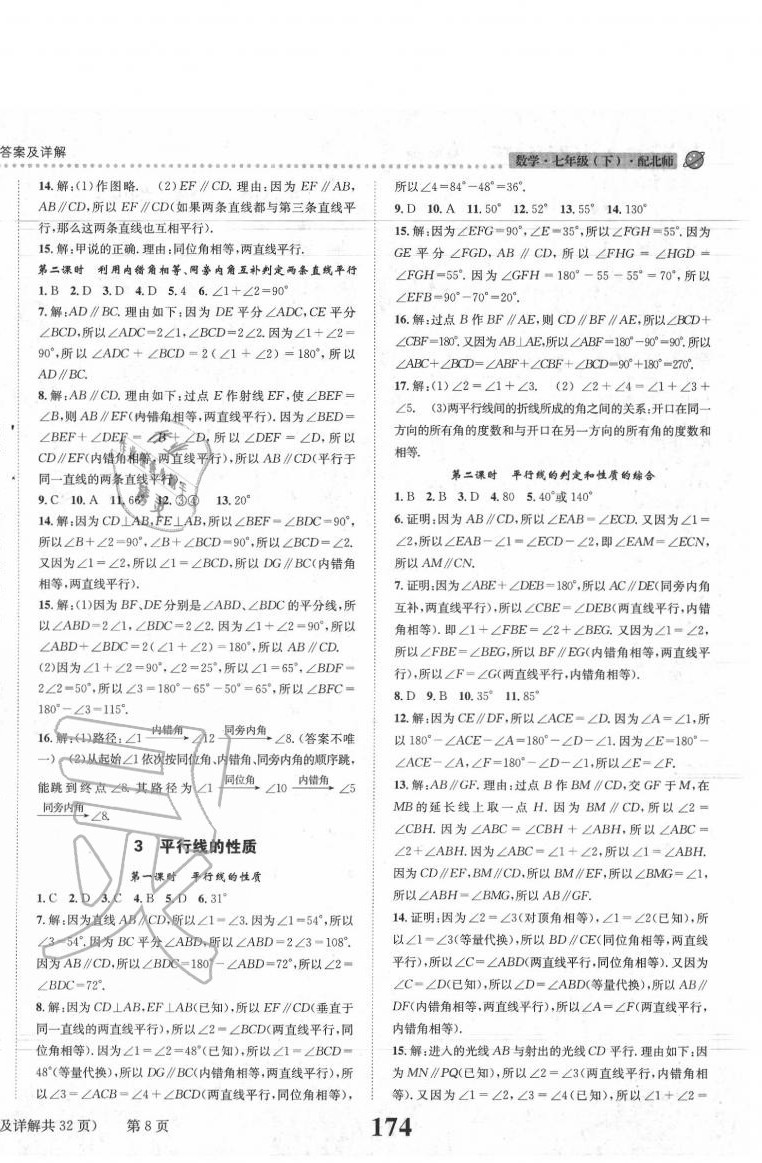 答案及详解
数学·七年级（下）·配北师
14. 解:(1)作图略. (2)EF∥CD. 理由:因为 EF∥AB,
AB∥CD,所以 EF∥CD(如果两条直线都与第三条直线平
行,那么这两条直线也互相平行).
15. 解:甲说的正确. 理由:同位角相等,两直线平行.
第二课时 利用内错角相等、同旁内角互补判定两条直线平行
1. B 2. D 3. D 4. D 5. 4 6. ∠1+∠2=90°
7. 解:AD∥BC. 理由如下:因为 DE 平分∠ADC,CE 平分
∠BCD,所以∠ADC=2∠1,∠BCD=2∠2. 因为∠1+∠2=
90°,所以∠ADC+∠BCD=2(∠1+∠2)=180°,所以
AD∥BC.
8. 解:AB∥CD. 理由如下:过点 E 作射线 EF,使∠BEF=
∠B,则 AB∥EF(内错角相等,两直线平行). 因为∠BED=
∠BEF+∠DEF=∠B+∠D,所以∠DEF=∠D,所以
CD∥EF(内错角相等,两直线平行),所以 AB∥CD(平行于
同一直线的两条直线平行).
9. C 10. A 11. 66° 12. ③④ 13. 20°
14. 解:因为 CD⊥AB,FE⊥AB,所以∠BEF=∠BDC=90°,
所以∠B+∠2=90°,∠B+∠BCD=90°,所以∠BCD=∠2.
又因为∠1=∠2,所以∠1=∠BCD,所以 DG∥BC(内错角
相等,两直线平行).
15. 解:(1)因为 BF、DE 分别是∠ABD、∠BDC 的平分线,所
以∠ABD=2∠1,∠BDC=2∠2. 因为∠1+∠2=90°,所以
∠ABD+∠BDC=2(∠1+∠2)=180°,所以 AB∥CD.
(2)因为∠1+∠2=90°,∠2=25°,所以∠1=65°,∠BDF=
2∠2=50°,所以∠3=180°-65°-50°=65°,所以∠BFC=
180°-∠3=115°.
16. 解:(1)路径:∠1 内错角 ∠12 同旁内角 ∠8. (答案不唯
一) (2)从起始∠1依次按同位角、内错角、同旁内角的顺序跳,
能跳到终点∠8. 其路径为∠1 同位角 ∠10 内错角 ∠5
同旁内角 ∠8.
3 平行线的性质
第一课时 平行线的性质
1. C 2. D 3. C 4. B 5. D 6. 31°
7. 解:因为直线 AB∥CD,所以∠1=∠3. 因为∠1=54°,所以
∠3=54°. 因为 BC 平分∠ABD,所以∠ABD=2∠3=108°.
因为 AB∥CD,所以∠BDC=180°-∠ABD=72°,所以∠2=
∠BDC=72°.
8. 解:因为 CD⊥AB,EF⊥AB(已知),所以 EF∥CD(垂直于
同一直线的两直线平行),所以∠2=∠BCD(两直线平行,同
位角相等). 因为∠1=∠2=48°(已知),所以∠1=∠BCD=
48°(等量代换),所以 DG∥BC(内错角相等,两直线平行),所
以∠3=∠ACB=∠4+∠BCD(两直线平行,同位角相等),
所以∠4=84°-48°=36°.
9. D 10. A 11. 50° 12. 52° 13. 55° 14. 130°
15. 解:因为∠EFG=90°,∠E=35°,所以∠FGH=55°. 因为
GE 平分∠FGD, AB∥CD,所以∠FHG=∠HGD=
∠FGH=55°. 因为∠GFH=180°-55-55°=70°,所以
∠EFB=90°-70°=20°.
16. 解:过点 B 作 BF∥AE,则 CD∥BF∥AE,所以∠BCD+
∠CBF=180°. 又因为 AB⊥AE,所以∠ABF=180°-90°=90°. 所以
∠ABC+∠BCD=∠ABF+∠CBF+∠BCD=90°+180°=270°.
17. 解:(1)∠2=∠1+∠3. (2)∠2+∠4=∠1+∠3+
∠5. (3)两平行线间的折线所成的角之间的关系:开口在同一
方向的所有角的度数和与开口在另一方向的所有角的度数和
相等.
第二课时 平行线的判定和性质的综合
1. B 2. B 3. D 4. 80 5. 40°或 140°
6. 证明:因为 AB∥CD,所以∠EAB=∠ECD. 又因为∠1=
∠2,所以∠EAB-∠1=∠ECD-∠2,即∠EAM=∠ECN,
所以 AM∥CN.
7. 证明:因为∠ABE+∠DEB=180°,所以 AC∥DE(同旁内角
互补,两直线平行),所以∠CBE=∠DEB(两直线平行,内错
角相等). 即∠1+∠FBE=∠2+∠BEG. 又因为∠1=∠2,
所以∠FBE=∠BEG,所以 BF∥EG(内错角相等,两直线平
行),所以∠F=∠G(两直线平行,内错角相等).
8. D 9. B 10. 35° 11. 85°
12. 解:因为 CE∥DF,所以∠ACE=∠D. 因为∠A=∠1,所
以 180°-∠ACE-∠A=180°-∠D-∠1. 因为∠E=180°-
∠ACE-∠A,∠F=180°-∠D-∠1,所以∠E=∠F.
13. 解:AB∥GF. 理由:过点 B 作 BM∥CD,交 GF 于 M,在
MB 的延长线上取一点 H. 因为 BM∥CD,所以∠2=
∠CBH. 因为∠ABC=∠CBH+∠ABH,所以∠ABC=
∠2+∠ABH. 因为∠ABC=∠1+∠2,所以∠1=∠ABH.
因为 CD∥EF,BM∥CD,所以 BM∥EF,所以∠BMG=∠1,
所以∠ABH=∠BMG,所以 AB∥GF.
14. 证明:因为∠2=∠3(对顶角相等),∠1=∠2(已知),所
以∠1=∠3(等量代换),所以 BD∥CE(同位角相等,两直线
平行),所以∠C=∠ABD(两直线平行,同位角相等). 又因为
∠C=∠D(已知),所以∠D=∠ABD(等量代换),所以 AB∥
DF(内错角相等,两直线平行),所以∠A=∠F(两直线平行,
内错角相等).
15. 解:进入的光线 AB 与射出的光线 CD 平行. 理由如下:因
为 MN∥PQ(已知),所以∠2=∠3(两直线平行,内错角相
等). 又因为∠2=∠1,∠3=∠4(已知),所以∠1=∠4(等
及详解共 32 页) 第 8 页
174